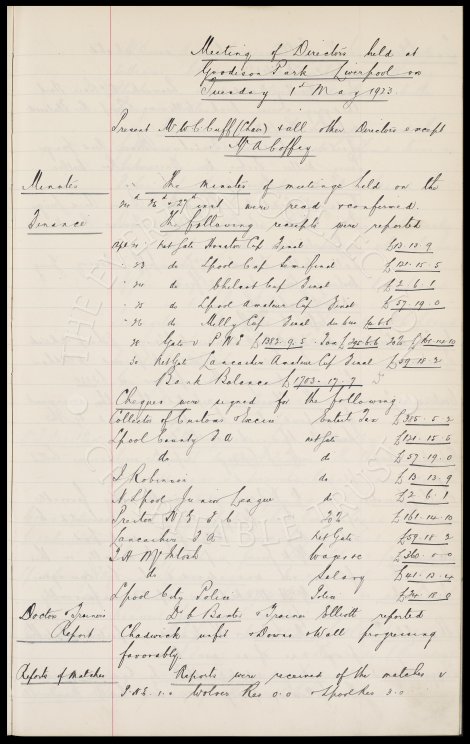 Meeting of Directors held at
Goodison Park Liverpool on
Tuesday 1st May 1923.
Present Mr W C Cuff (Chair) & all other Directors except
Mr A Coffey
Minutes The Minutes of meetings held on the
24th 26th & 27th inst were read & confirmed.
Finance The following receipts were reported
Net Gate Senator Cup Final £13.13.9
" 23 do Lpool Cup Semifinal £121.15.5
" 24 do Cup Final £2.6.1
" 25 do Lpool Amateur Cup Final £57.19.0
" 26 do Molly Cup Final
28 Gate v P.N.E £1382.9.5 Tax 20% £161.14.10
30 Net Gate Lancashire Amateur Cup Final £59.18.2
Bank Balance £1703.17.7
Cheques were signed for the following
Collector of Customs & Excise Entert Tax £385.5.2
Lpool County F A net Gate £121.15.5
do do £57.19.0
J Robinson do £13.13.9
N Lpool Junior League do £2.6.1
Preston N. E. F C 20% £161.14.10
Lancashire F A Net Gate £59.18.2
Wages £360.0.0
do Salary £41.13.4
Lpool City Police
Doctor & Trainers Dr C Baxter & Trainer Elliott reported
Report Chadwick unfit & Downs & Wall progressing
favorably.
Reports of Matches Reports were received of the matches v
P N E 1.0 Wolver Res 0.0 & Lpool Res 3.0